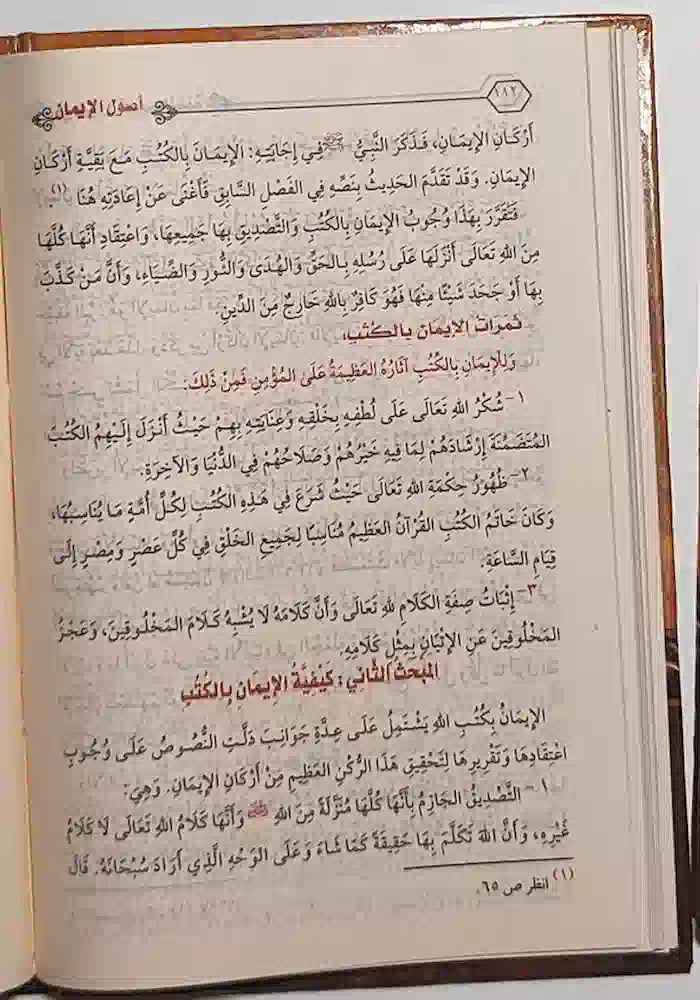 ١٨٢
أصول الإيمان
أَرْكَانِ الإِيمَانِ، فَذَكَرَ النَّبِيُّ ﷺ فِي إِجَابَتِهِ: الإِيمَانَ بِالكُتُبِ مَعَ بَقِيَّةِ أَرْكَانِ
الإِيمَانِ. وَقَدْ تَقَدَّمَ الحَدِيثُ بِنَصِّهِ فِي الفَصْلِ السَّابِقِ فَأَغْنَى عَنْ إِعَادَتِهِ هُنَا (١).
فَتَقَرَّرَ بِهَذَا وُجُوبُ الإِيمَانِ بِالكُتُبِ وَالتَّصْدِيقِ بِهَا جَمِيعِهَا، وَاعْتِقَادِ أَنَّهَا كُلَّهَا
مِنَ اللهِ تَعَالَى أَنْزَلَهَا عَلَى رُسُلِهِ بِالحَقِّ وَالهُدَى وَالنُّورِ وَالضِّيَاءِ، وَأَنَّ مَنْ كَذَّبَ
بِهَا أَوْ جَحَدَ شَيْئًا مِنْهَا فَهُوَ كَافِرٌ بِاللهِ خَارِجٌ مِنَ الدِّينِ.
ثمرات الإيمان بالكتب:
وَلِلْإِيمَانِ بِالكُتُبِ آثَارُهُ العَظِيمَةُ عَلَى المُؤْمِنِ فَمِنْ ذَلِكَ:
١- شُكْرُ اللهِ تَعَالَى عَلَى لُطْفِهِ بِخَلْقِهِ وَعِنَايَتِهِ بِهِمْ حَيْثُ أَنْزَلَ إِلَيْهِمُ الكُتُبَ
المُتَضَمِّنَةَ إِرْشَادَهُمْ لِمَا فِيهِ خَيْرُهُمْ وَصَلَاحُهُمْ فِي الدُّنْيَا وَالآخِرَةِ.
٢- ظُهُورُ حِكْمَةِ اللهِ تَعَالَى حَيْثُ شَرَعَ فِي هَذِهِ الكُتُبِ لِكُلِّ أُمَّةٍ مَا يُنَاسِبُهَا،
وَكَانَ خَاتَمُ الكُتُبِ القُرْآنُ العَظِيمُ مُنَاسِبًا لِجَمِيعِ الخَلْقِ فِي كُلِّ عَصْرٍ وَمِصْرٍ إِلَى
قِيَامِ السَّاعَةِ.
٣- إِثْبَاتُ صِفَةِ الكَلَامِ لِلهِ تَعَالَى وَأَنَّ كَلَامَهُ لَا يُشْبِهُ كَلَامَ المَخْلُوقِينَ، وَعَجْزُ
المَخْلُوقِينَ عَنِ الإِتْيَانِ بِمِثْلِ كَلَامِهِ.
المبحث الثاني: كَيْفِيَّةُ الإِيمَانِ بِالكُتُبِ
الإِيمَانُ بِكُتُبِ اللهِ يَشْتَمِلُ عَلَى عِدَّةِ جَوَانِبَ دَلَّتِ النُّصُوصُ عَلَى وُجُوبِ
اعْتِقَادِهَا وَتَقْرِيرِهَا لِتَحْقِيقِ هَذَا الرُّكْنِ العَظِيمِ مِنْ أَرْكَانِ الإِيمَانِ. وَهِيَ:
١- التَّصْدِيقُ الجَازِمُ بِأَنَّهَا كُلَّهَا مُنَزَّلَةٌ مِنَ اللهِ ﷻ وَأَنَّهَا كَلَامُ اللهِ تَعَالَى لَا كَلَامُ
غَيْرِهِ، وَأَنَّ اللهَ تَكَلَّمَ بِهَا حَقِيقَةً كَمَا شَاءَ وَعَلَى الوَجْهِ الَّذِي أَرَادَ سُبْحَانَهُ. قَالَ
(١) انظر ص ٦٥.